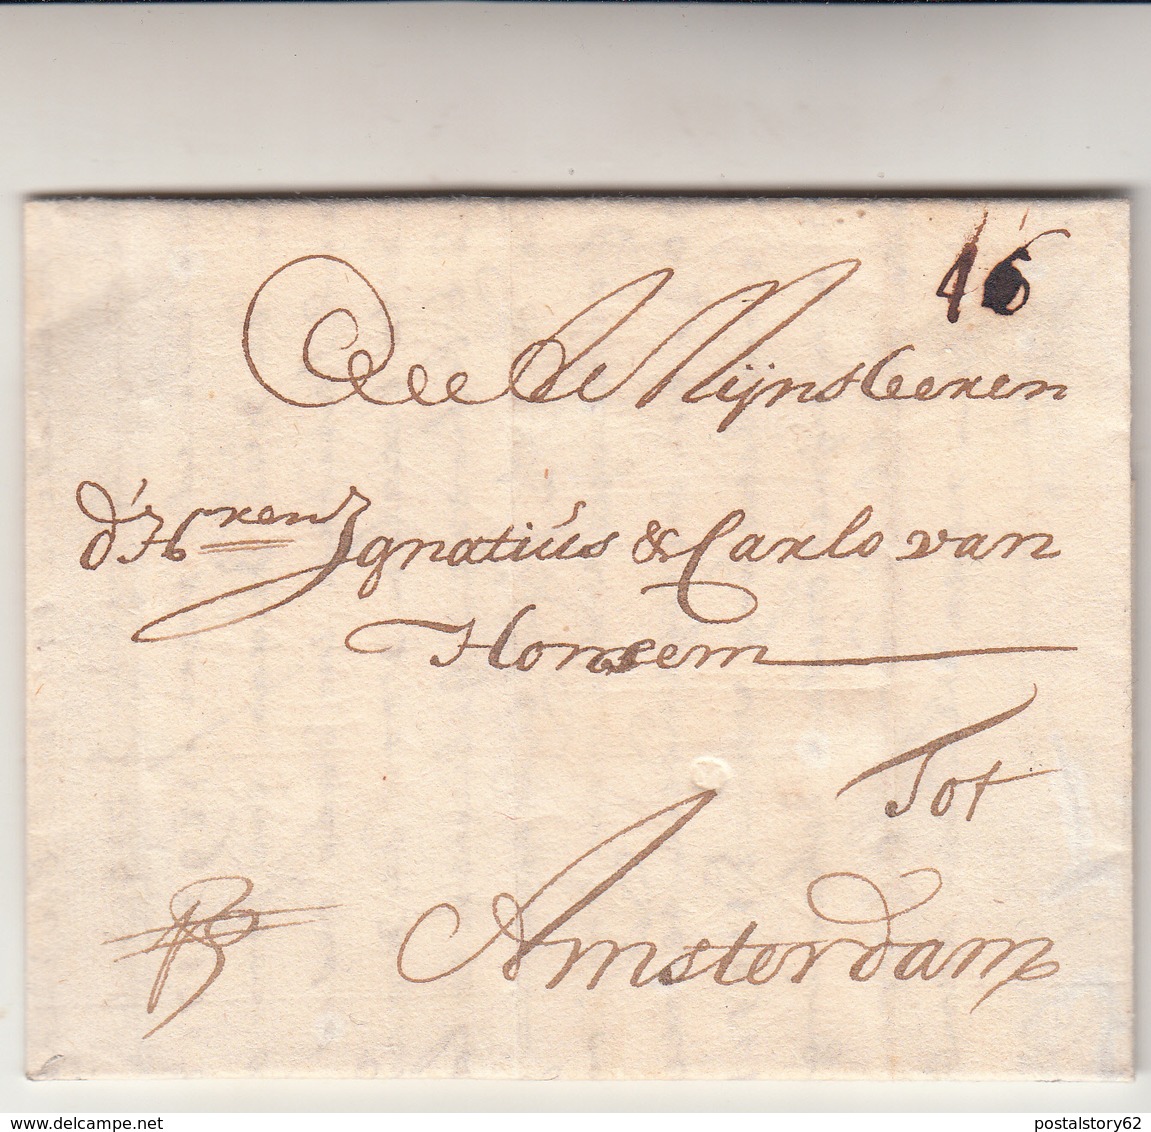 46
Mijnheeren
d'Hren Ignatius & Carlo van
Honsem
Tot
Amsterdam
delcampe.net
postalstory62